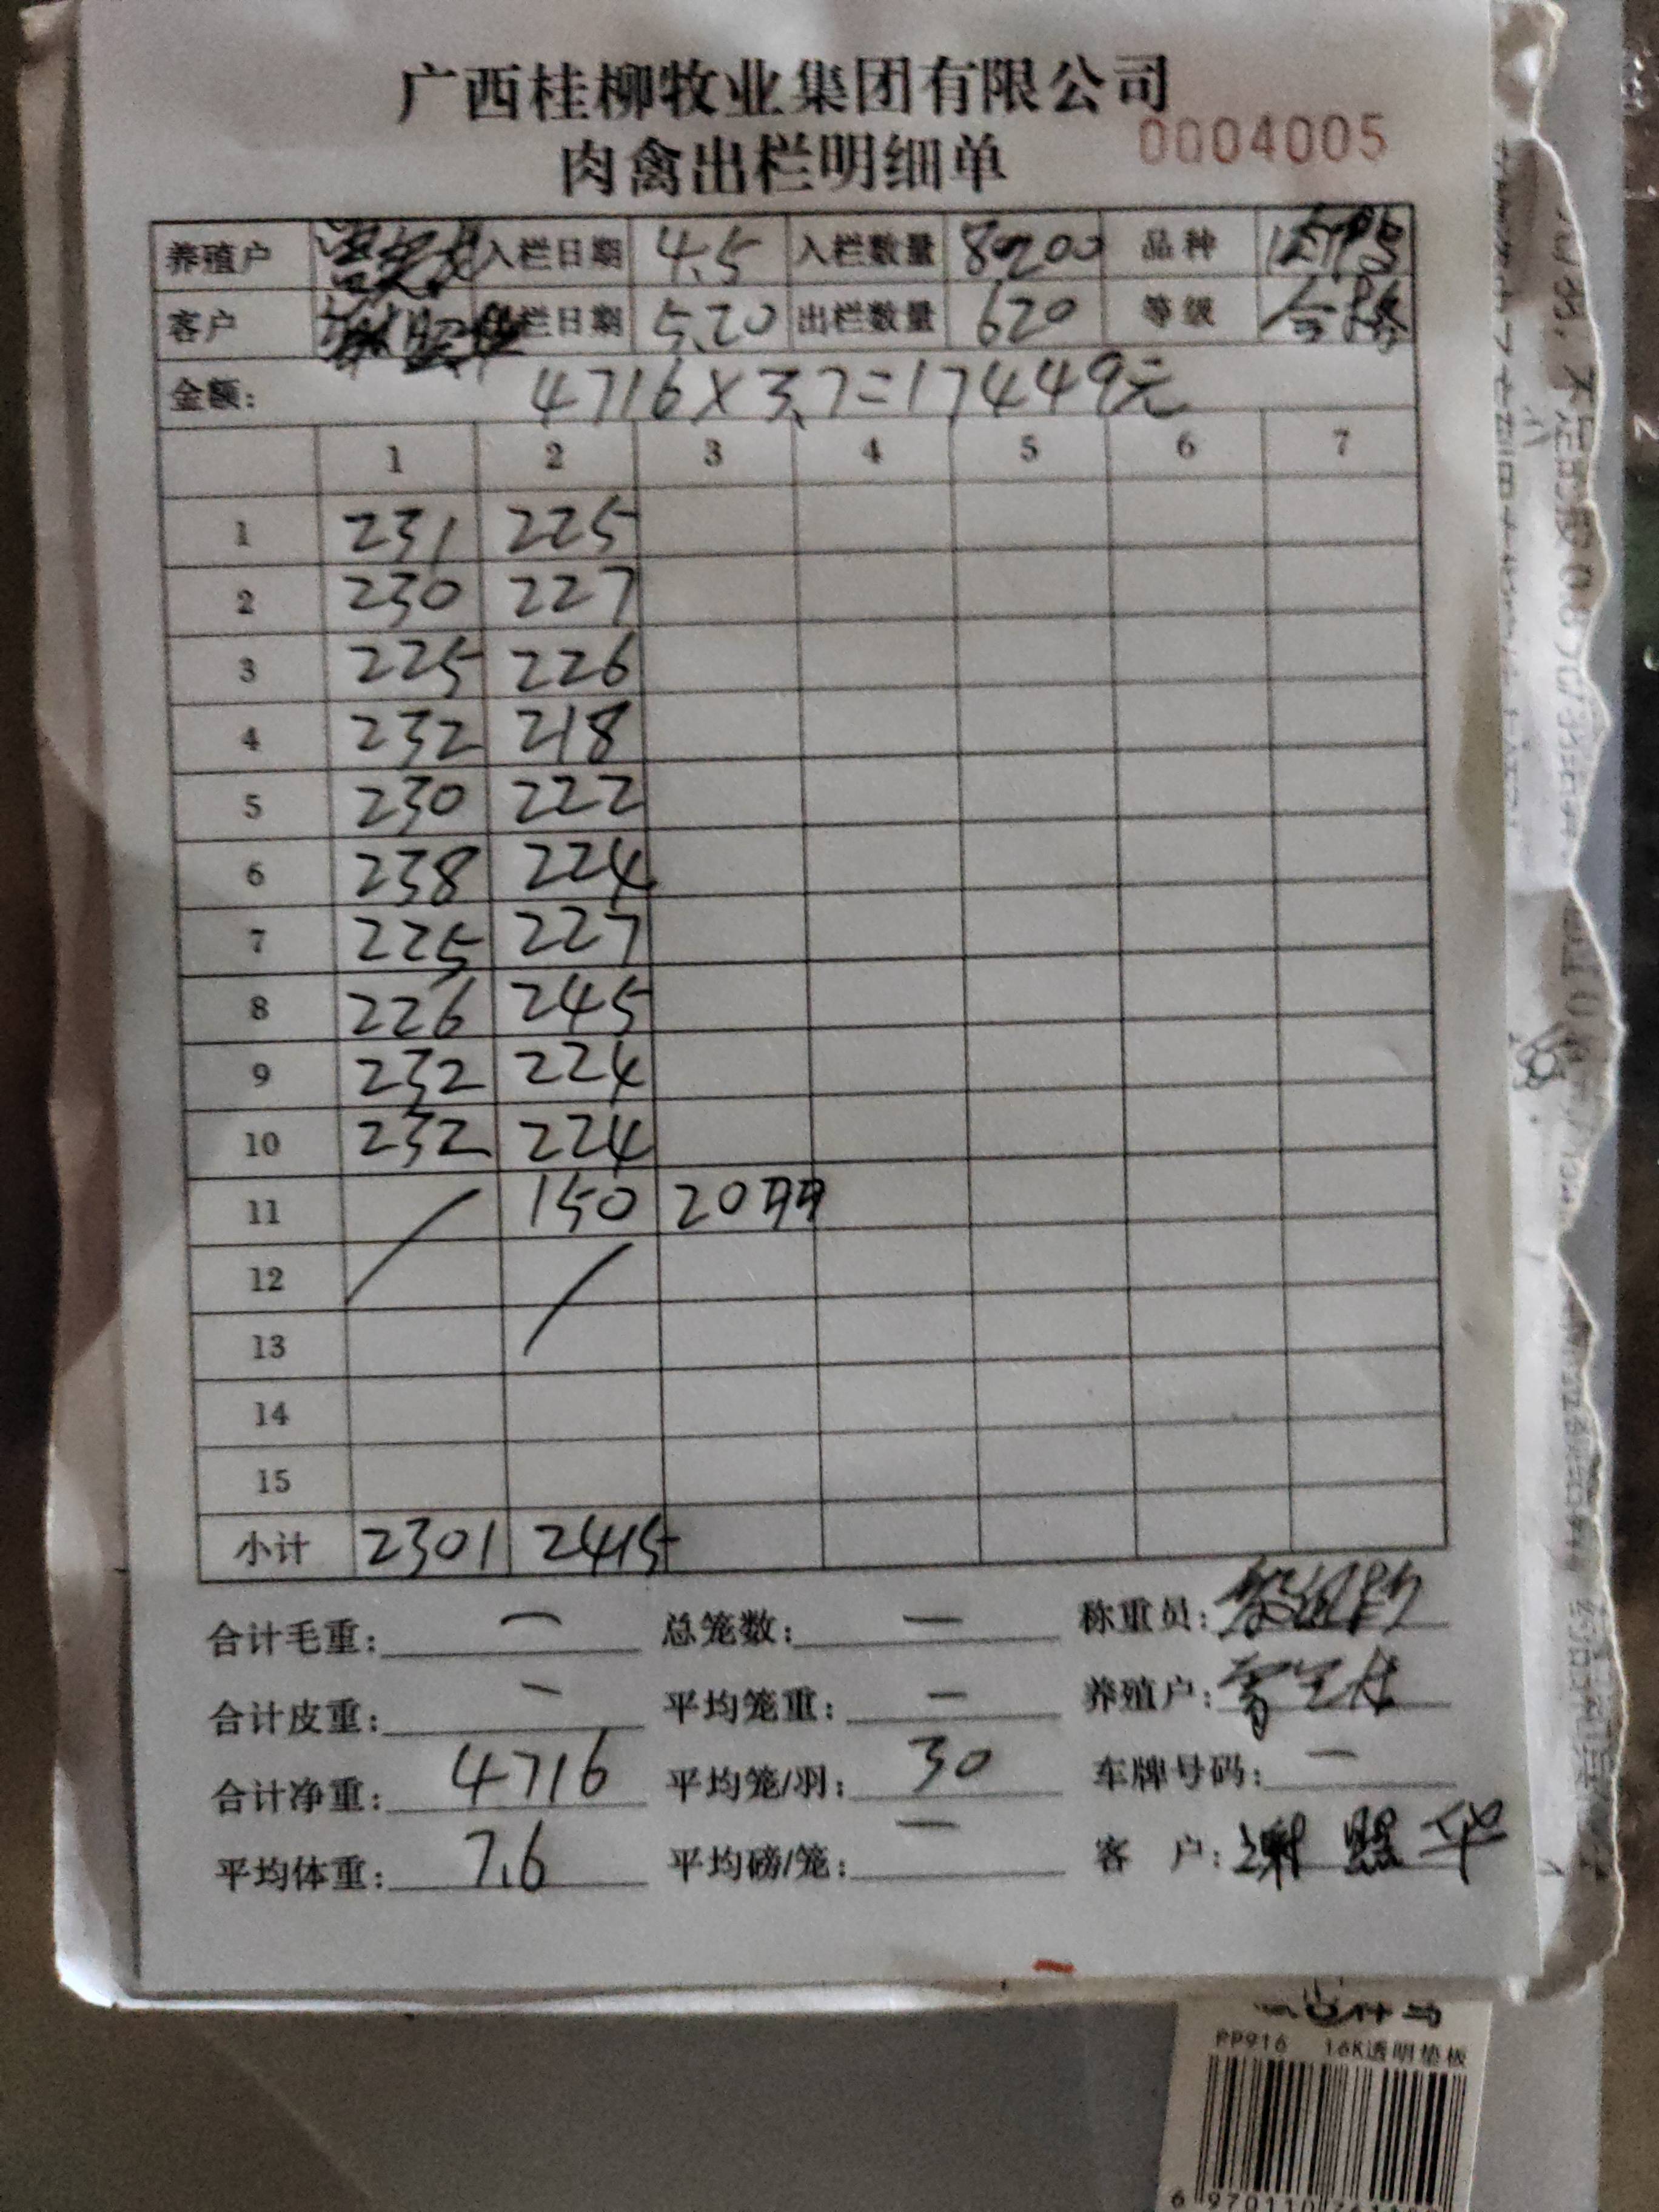 广西桂柳牧业集团有限公司
肉禽出栏明细单 0004005
养殖户 入栏日期 4.5 入栏数量 8200 品种
客户 栏日期 5.20 出栏数量 620 等级 合格
金额: 4716×3.7=17449元
1 2 3 4 5 6 7
1 231 225
2 230 227
3 225 226
4 232 218
5 230 222
6 238 224
7 225 227
8 226 245
9 232 224
10 232 224
11 150 20羽
12
13
14
15
小计 2301 2415
合计毛重: — 总笼数: — 称重员:
合计皮重: — 平均笼重: — 养殖户:
合计净重: 4716 平均笼/羽: 30 车牌号码: —
平均体重: 7.6 平均磅/笼: — 客户: 谢 照 华
PP916 16K透明垫板
6 970110